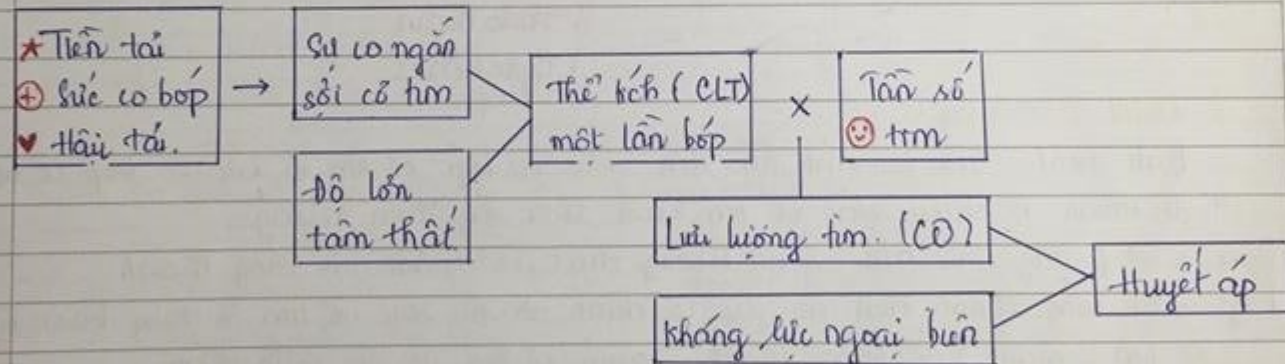 ★ Tiền tải
⊕ Sức co bóp
♥ Hậu tải.
→
Sự co ngắn
sợi cơ tim
Độ lớn
tâm thất
Thể tích (CLT)
một lần bóp
×
Tần số
☺ tim
Lưu lượng tim. (CO)
Kháng lực ngoại biên
Huyết áp